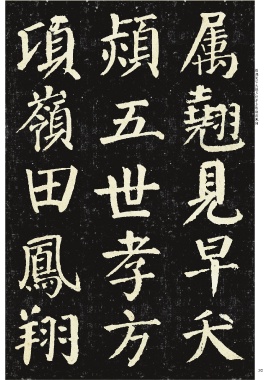 属翹見早夭
五世孝方
項嶺田鳳翔